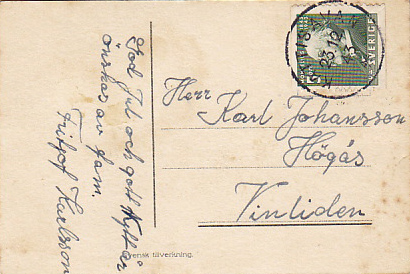 God Jul och gott Nytt år
önskas av fam.
Fritjof Karlsson
Herr
Karl Johansson
Högås
Vinliden
SVERIGE
23 12
43
Svensk tillverkning.